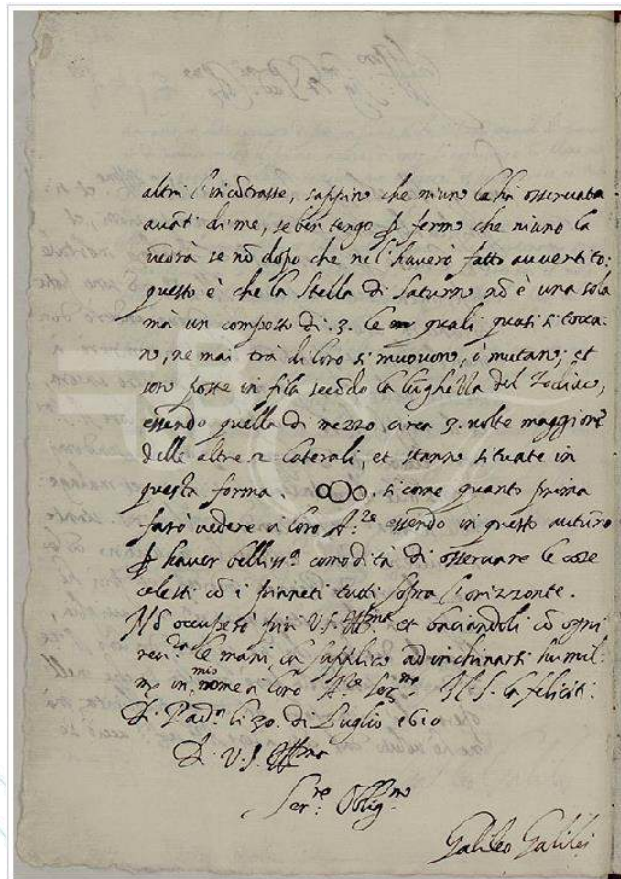 altri l'incõtrasse, sappino che niuno la ha osservata
avãti di me, se ben tengo ꝑ fermo che niuno la
vedrà se nõ dopo che ne l'haverò fatto avvertito:
questo è che la stella di Saturno nõ è una sola
mà un composto di .3. le quali quasi si tocca-
no, ne mai trà di loro si muovono, ò mutano; et
son poste in fila secõdo la lũghezza del Zodiaco,
essendo quella di mezzo circa 3. volte maggiore
delle altre 2 laterali, et stanno situate in
questa forma. oOo. si come quanto prima
farò vedere a loro A.ze essendo in questo autũno
ꝑ haver belliss.a comodità di osservare le cose
celesti cõ i pianeti tutti sopra l'orizzonte.
Nõ occuperò più V.S. Ill.ma et baciandoli cõ ogni
rev.za le mani, la supplico ad inchinarsi humil.
in mio nome a loro A.ze Ser.me N.S. la feliciti.
D. Pad.a li 30. di Luglio 1610
D. V.S. Ill.ma
Ser.re Oblig.mo
Galileo Galilei